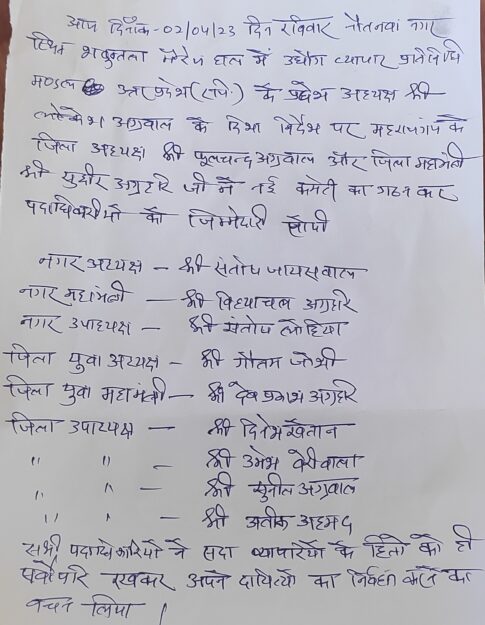 आज दिनाँक-02/04/23 दिन रविवार नौतनवां नगर
स्थित शकुन्तला मैरेज हाल में उद्योग व्यापार प्रतिनिधि
मण्डल उत्तर प्रदेश (रजि.) के प्रदेश अध्यक्ष श्री
लोकेश अग्रवाल के दिशा निर्देश पर महराजगंज के
जिला अध्यक्ष श्री फूलचन्द अग्रवाल और जिला महामंत्री
श्री सुधीर अग्रहरि जी ने नई कमेटी का गठन कर
पदाधिकारीयों को जिम्मेदारी सौंपी
नगर अध्यक्ष - श्री संतोष जायसवाल
नगर महामंत्री - श्री विंध्याचल अग्रहरि
नगर उपाध्यक्ष - श्री संतोष लोहिया
जिला युवा अध्यक्ष - श्री गौतम जोशी
जिला युवा महामंत्री - श्री देव प्रकाश अग्रहरि
जिला उपाध्यक्ष - श्री दिनेश खेतान
" " - श्री उमेश बेरीवाला
" " - श्री सुनील अग्रवाल
" " - श्री अतीक अहमद
सभी पदाधिकारियों ने सदा व्यापारियों के हितों को ही
सर्वोपरि रखकर अपने दायित्यों का निर्वहन करने का
वचन लिया ।